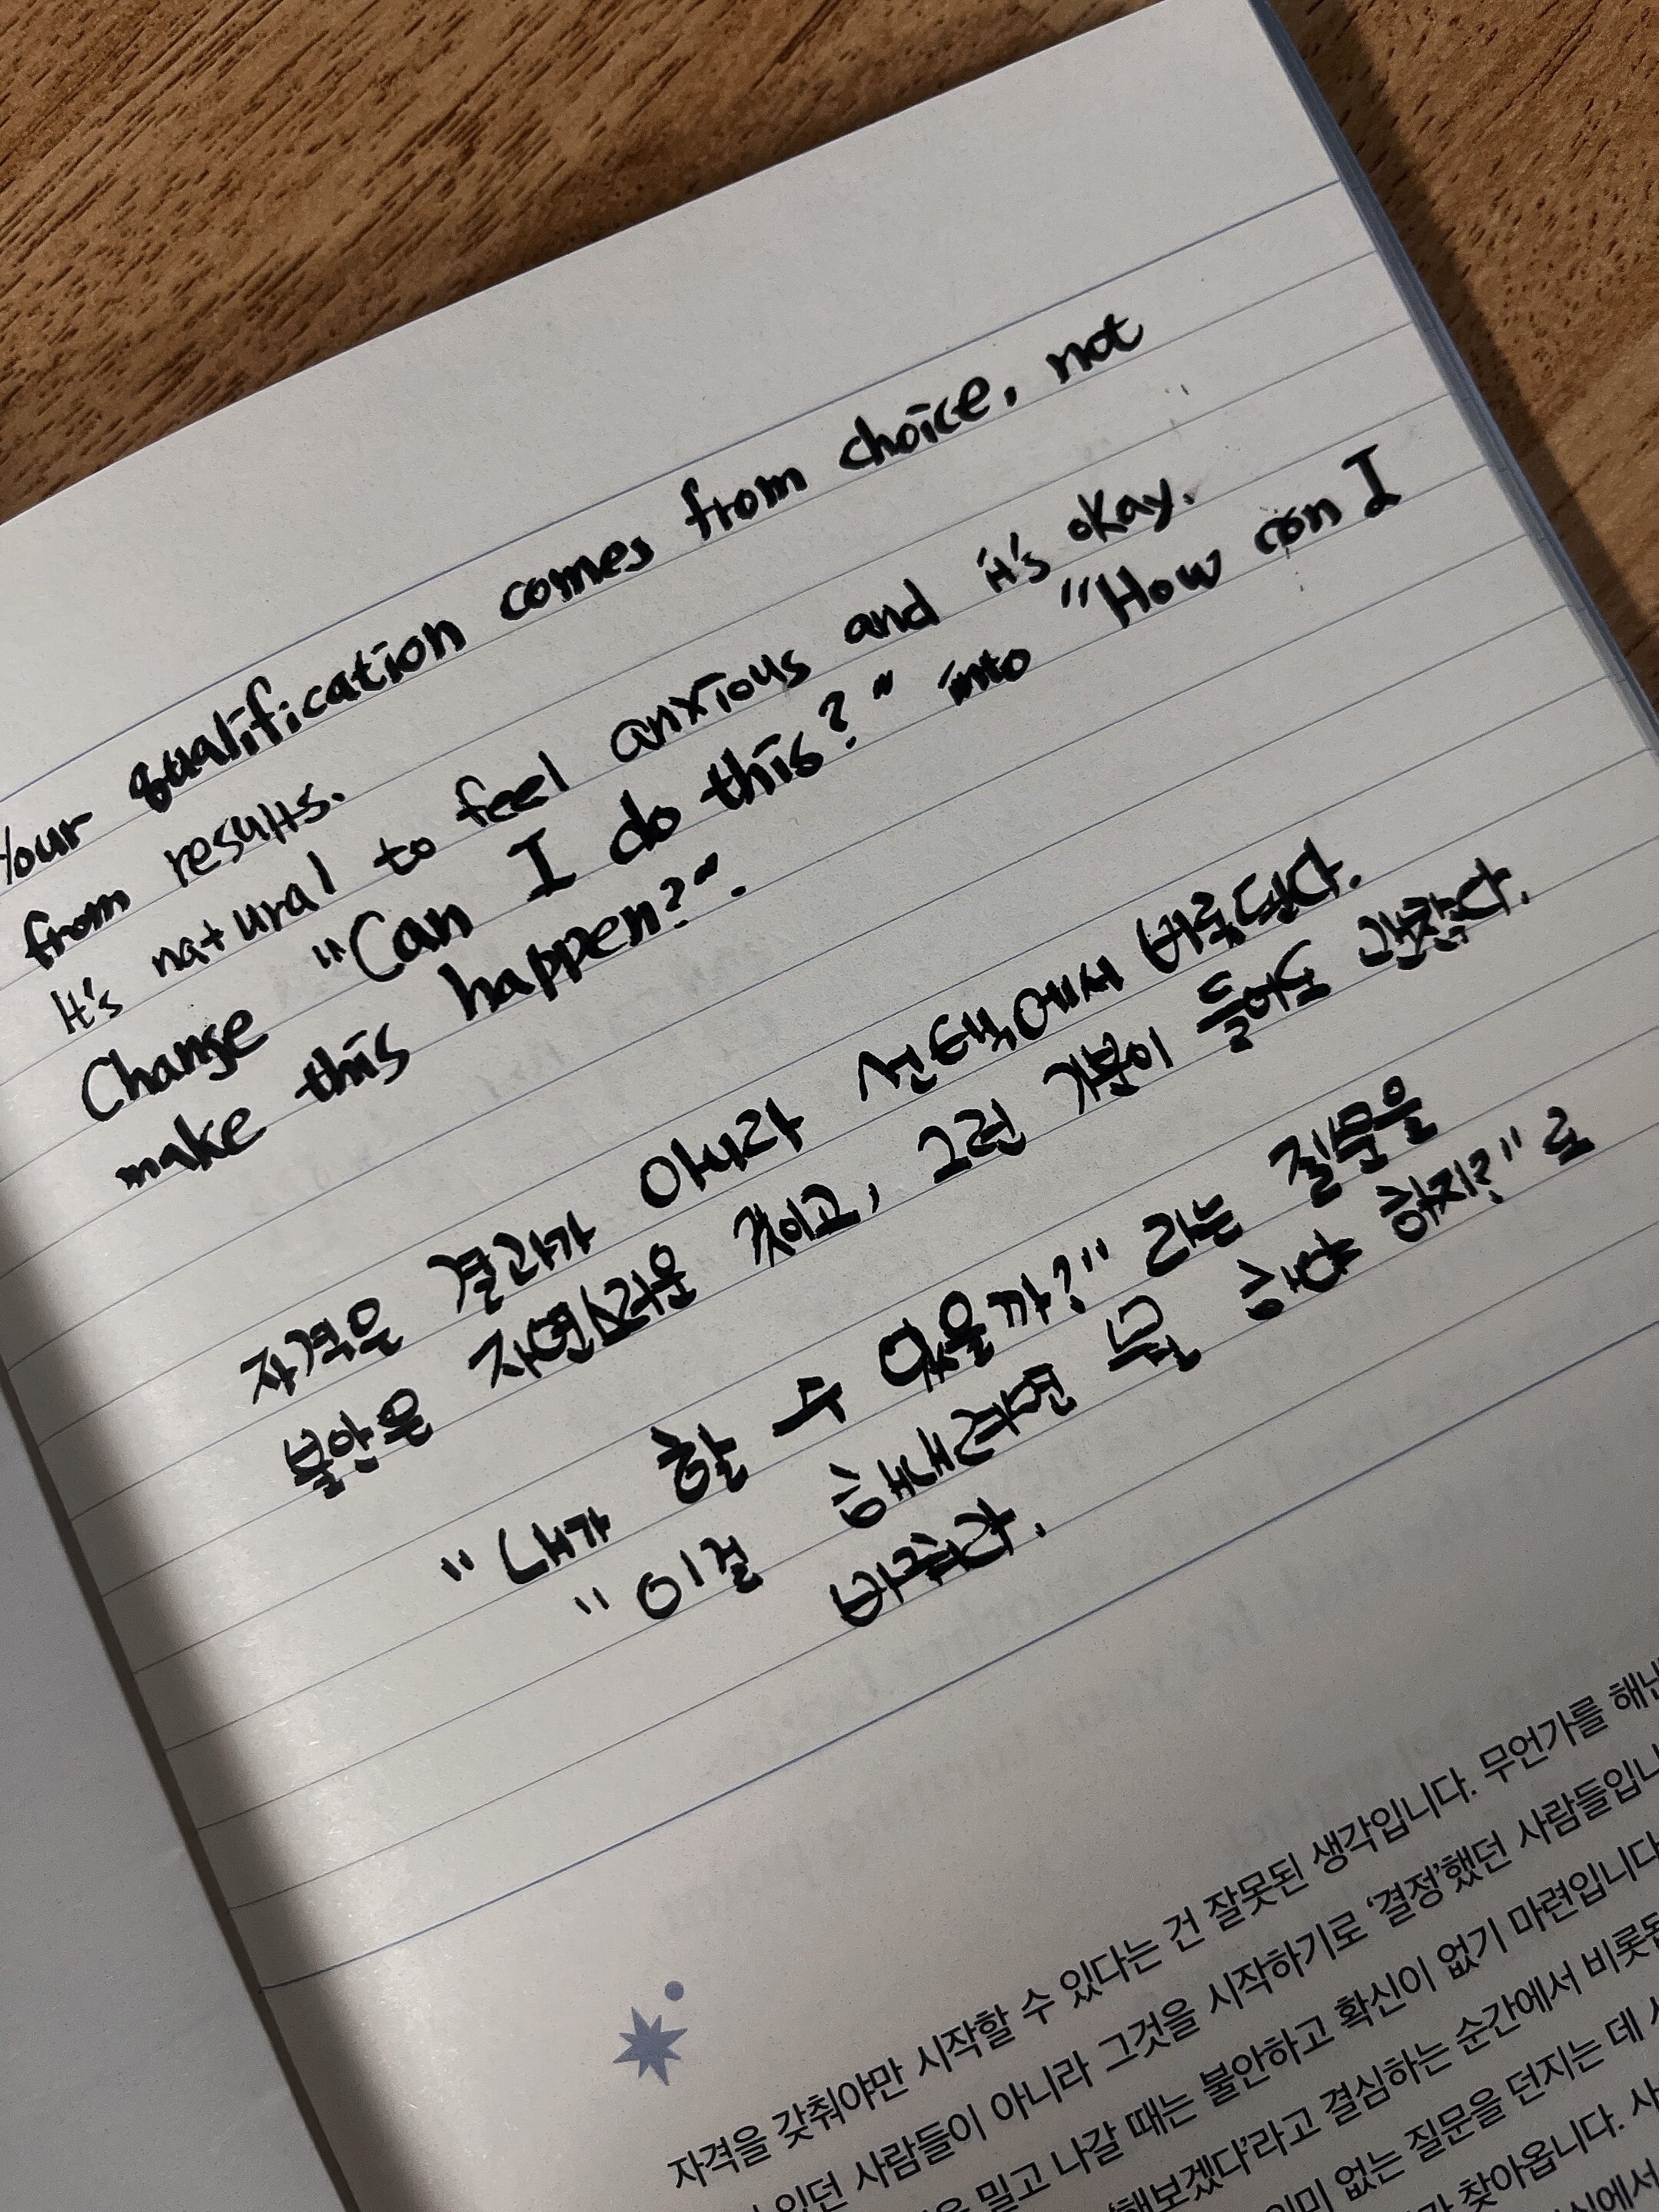 Your qualification comes from choice, not
from results.
It's natural to feel anxious and it's okay.
Change "Can I do this?" into "How can I
make this happen?".
자격은 결과가 아니라 선택에서 비롯된다.
불안은 자연스러운 것이고, 그런 기분이 들어도 괜찮다.
"내가 할 수 있을까?" 라는 질문을
"이걸 해내려면 뭘 해야 하지?"로
바꾸자.
자격을 갖춰야만 시작할 수 있다는 건 잘못된 생각입니다. 무언가를 해낸
있던 사람들이 아니라 그것을 시작하기로 '결정'했던 사람들입니
밀고 나갈 때는 불안하고 확신이 없기 마련입니다
'해보겠다'라고 결심하는 순간에서 비롯됩
의미 없는 질문을 던지는 데
찾아옵니다.